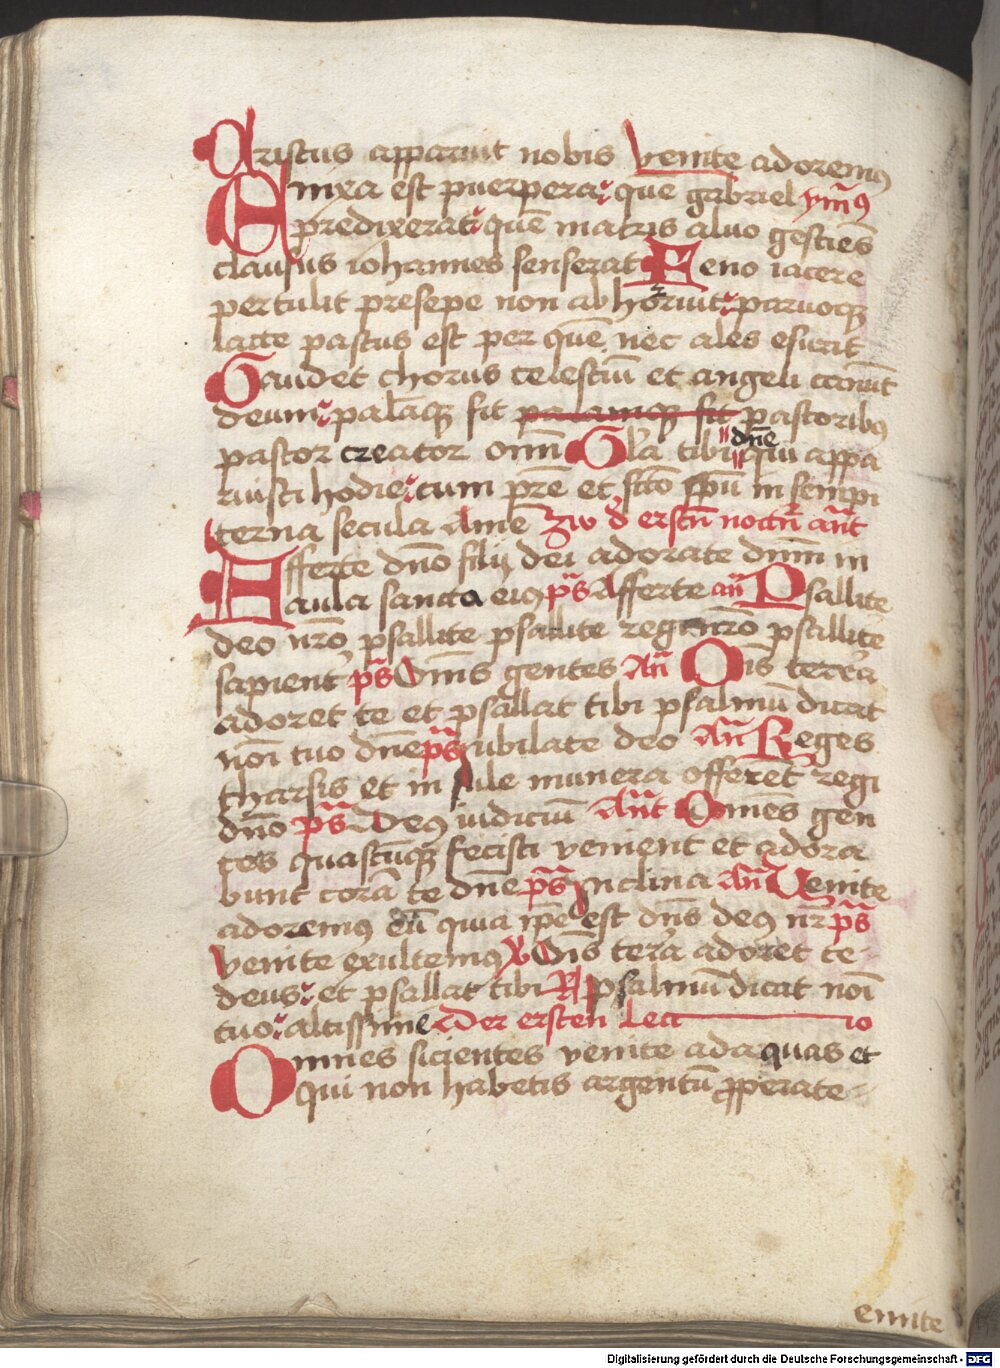 Cristus apparuit nobis venite adoremꝰ
Enixa est puerpera que gabriel ym̄ꝰ
predixerat quē matris aluo gestiēs
clausus iohannes senserat Feno iacere
pertulit presepe non abhoruit paruoqꝫ
lacte pastus est per quē nec ales esurit
Gaudet chorus celestiū et angeli canūt
deum palāqꝫ fit palamqꝫ fit pastoribꝯ
pastor creator oīm Glā tibi dn̄e qui appa
ruisti hodie cum pr̄e et sc̄to sp̄u in sempi
terna secula Amē Zw d̓ erstn̄ noctn̄ an̄t
Afferte dn̄o filij dei adorate dn̄m in
aula sancta eiꝰ ps̄ Afferte an̄ Psallite
deo nr̄o psallite psallite regi nr̄o psallite
sapient̓ ps̄ Om̄s gentes An̄ Oīs terra
adoret te et psallat tibi psalmū dicat
noī tuo dn̄e ps̄ Iubilate deo An̄ Reges
tharsis et insule munera offerēt regi
dn̄o ps̄ Deꝰ iudiciū An̄t Omēs gen
tes quascūqꝫ fecisti venient et adora
bunt corā te dn̄e ps̄ Inclina An̄ Venite
adoremꝰ eū quia ip̄e est dn̄s deꝰ nr̄ ps̄
Venite exultemꝰ V Oīs terra adoret te
deus et psallat tibi R psalmū dicat noī
tuo altissime Der ersten lect io
Omnes sicientes venite ad aquas et
qui non habetis argentū ꝓperate
enite
Digitalisierung gefördert durch die Deutsche Forschungsgemeinschaft - DFG